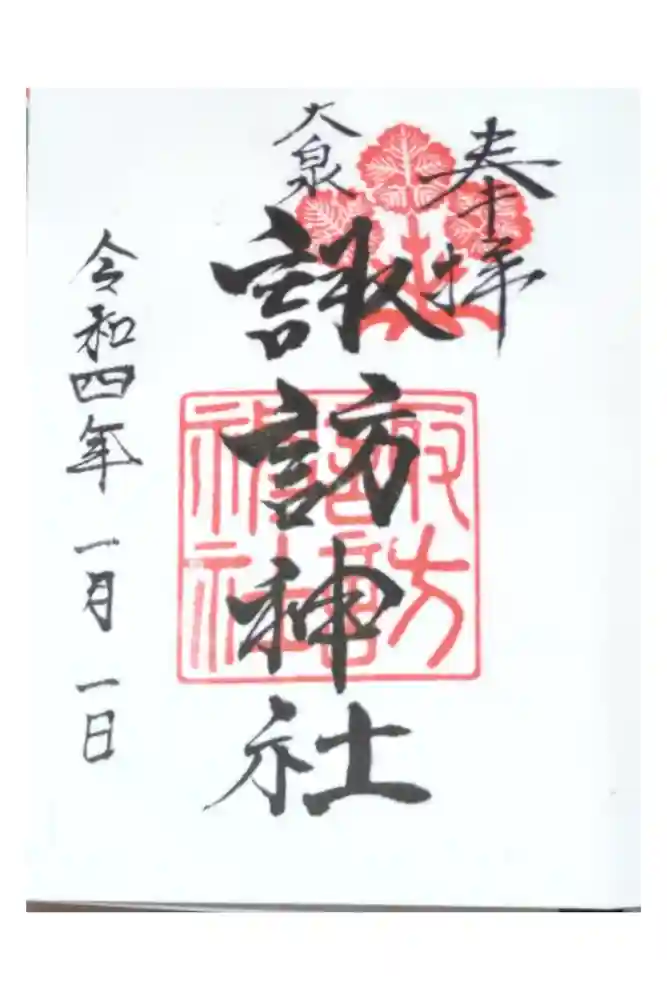 奉拝
大泉
諏訪神社
諏訪
神社
令和四年一月一日